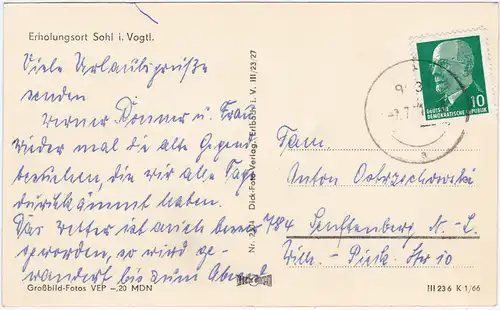 Erholungsort Sohl i. Vogtl.
Viele Urlaubsgrüße
senden
Werner Donner u. Frau
Wieder mal die alte Gegend
die wir alle Tage
haben.
Das Wetter ist auch
geworden, so wird ge-
wandert bis zum Abend
Großbild-Fotos VEP -,20 MDN
Dick-Foto-Verlag, Erlbach i. V. III/23/27
DEUTSCHE
DEMOKRATISCHE REPUBLIK
10
Fam.
Anton
784 Senftenberg N.-L.
Wilh.-Pieck-Str 10
III 23 6 K 1/66